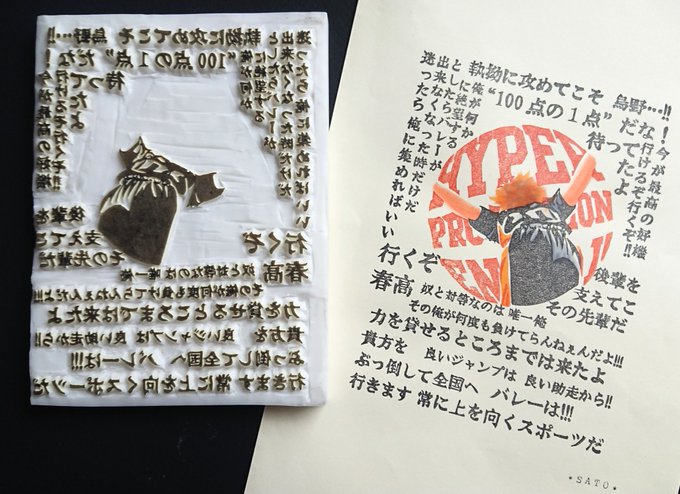 執拗に攻めてこそ 烏野…!!
“100点の1点”だな!
待ってたよ
今が最高の好機
行けるぞ行くぞ!!
俺が何か
に絶望する
としたらバレーが
出来なくなった時だけだ
迷ったら俺に集めればいい
HYPER
行くぞ
後輩を
支えてこ
その先輩だ
春高 奴と対等なのは 唯一俺
その俺が何度も負けてらんねぇんだよ!!!
力を貸せるところまでは来たよ
貴方を 良いジャンプは 良い助走から!!
ぶっ倒して全国へ バレーは!!!
行きます 常に上を向くスポーツだ
*SATO*